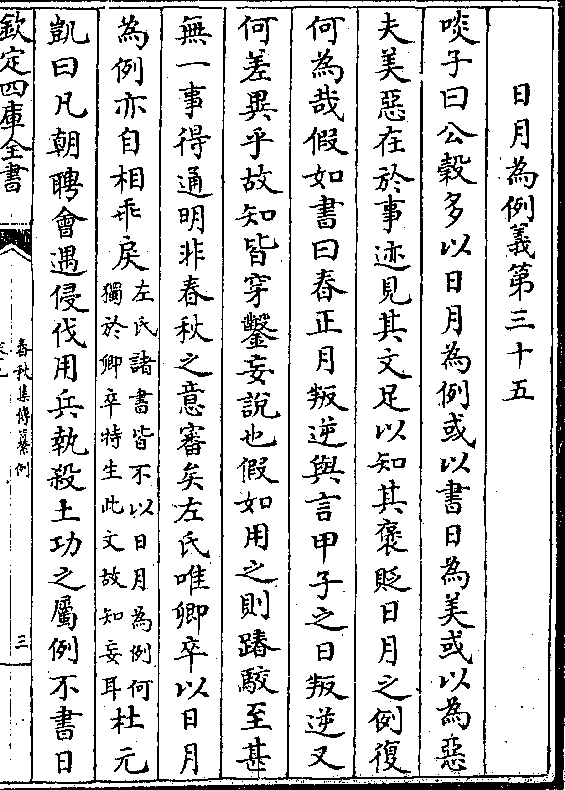 日月為例義第三十五
啖子曰公穀多以日月為例或以書日為美或以為惡
夫美惡在於事迹見其文足以知其褒貶日月之例復
何為哉假如書曰春正月叛逆與言甲子之日叛逆又
何差異乎故知皆穿鑿妄說也假如用之則踳駮至甚
無一事得通明非春秋之意審矣左氏唯卿卒以日月
為例亦自相乖戾左氏諸書皆不以日月為例何獨於卿卒特生此文故知妄耳杜元
凱曰凡朝聘會遇侵伐用兵執殺土功之屬例不書日
欽定四庫全書
春秋集傳纂例
三